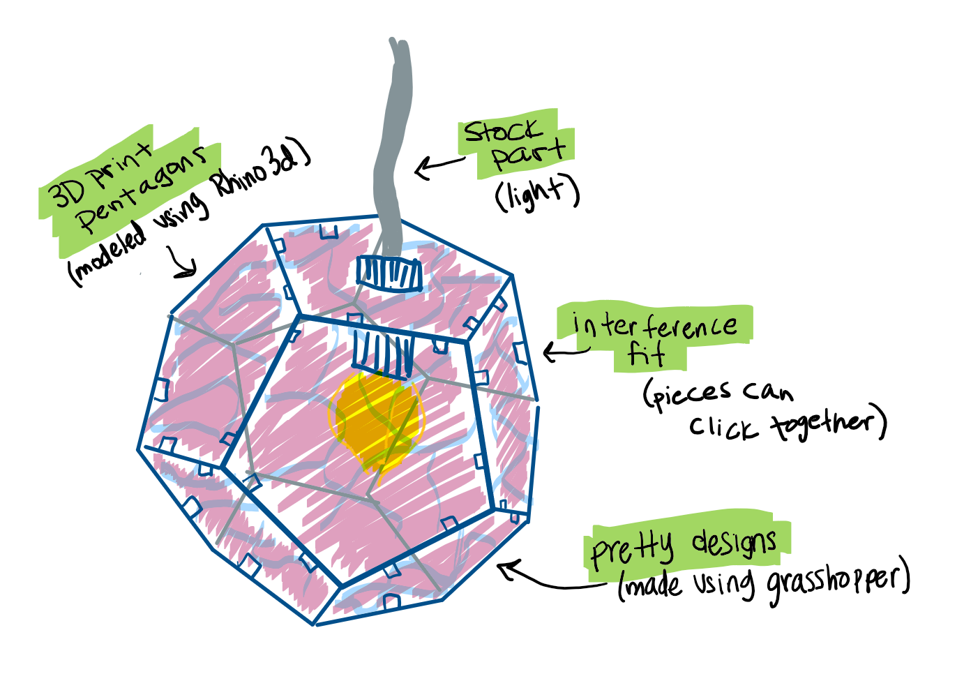 3D print
pentagons
(modeled using Rhino3d)
Stock
part
(light)
interference
fit
(pieces can
click together)
pretty designs
(made using grasshopper)